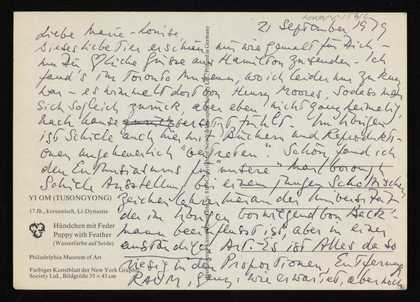 21 September 1979
Liebe Marie-Louise,
dieses liebe Tier erschien mir wie gemalt für Dich –
um Dir Grüsse aus Hamilton zu senden. Ich
fand's im Toronto Museum, wo ich leider nur zu kurz
war – es wimmelt dort von Henry Moores, sodass man
sich sogleich zurück, aber eben nicht ganz heimelig,
nach hause versetzt fühlt. Im übrigen
ist Schiele auch hier mit Büchern und Reprodukti-
onen ungeheuerlich "vertreten". Schön fand ich
den Enthusiasmus für unsere "Marlborough"
Schiele Ausstellung bei einem jungen Schottischen
Zeichenlehrer hier an der Universität
der im übrigen vorwiegend von Beck-
mann beeinflusst ist, aber in einer
anständigen Art. Es ist Alles da so
riesig in den Proportionen, Entfernung
RAUM, ganz wie erwartet, aber noch
YI OM (TUSONGYONG)
17. Jh., Koreanisch, Li-Dynastie
Hündchen mit Feder
Puppy with Feather
(Wasserfarbe auf Seide)
Philadelphia Museum of Art
Farbiges Kunstblatt der New York Graphic
Society Ltd., Bildgröße 35 x 43 cm